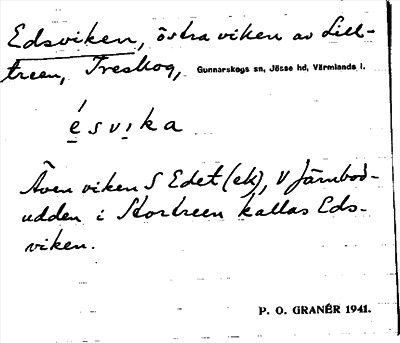 Edsviken, östra viken av Lill-
treen, Treskog, Gunnarskogs sn, Jösse hd, Värmlands l.
é s v ı k a
Även viken S Edet (ek), V Järnbod-
udden i Stortreen kallas Eds-
viken.
P. O. GRANÉR 1941.